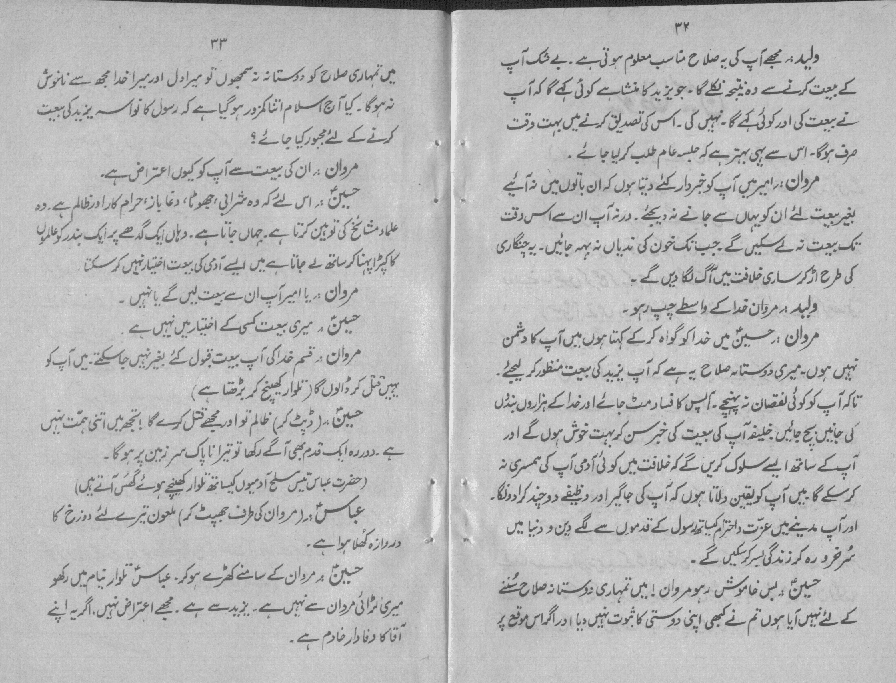 ۳۲
ولید :۔ مجھے آپ کی یہ صلاح مناسب معلوم ہوتی ہے ۔ بے شک آپ
کے بیعت کرنے سے وہ نتیجہ نکلے گا ۔ جو یزید کا منشا ہے کوئی کہے گا کہ آپ
نے بیعت کی اور کوئی کہے گا ۔ نہیں کی ۔ اس کی تصدیق کرنے میں بہت وقت
صرف ہوگا ۔ اس سے یہی بہتر ہے کہ جلسہ عام طلب کر لیا جائے ۔
مروان :۔ امیر میں آپ کو خبردار کئے دیتا ہوں کہ ان باتوں میں نہ آیئے
بغیر بیعت لئے ان کو یہاں سے جانے نہ دیجئے ۔ ورنہ آپ ان سے اس وقت
تک بیعت نہ لے سکیں گے ۔ جب تک خون کی ندیاں نہ بہہ جائیں ۔ یہ چنگاری
کی طرح اڑ کر ساری خلافت میں آگ لگا دیں گے ۔
ولید :۔ مروان خدا کے واسطے چپ رہو ۔
مروان :۔ حسینؑ میں خدا کو گواہ کر کے کہتا ہوں میں آپ کا دشمن
نہیں ہوں ۔ میری دوستانہ صلاح یہ ہے کہ آپ یزید کی بیعت منظور کر لیجئے ۔
تاکہ آپ کو کوئی نقصان نہ پہنچے ۔ آپس کا فساد مٹ جائے اور خدا کے ہزاروں بندوں
کی جانیں بچ جائیں خلیفہ آپ کی بیعت کی خبر سن کر بہت خوش ہوں گے اور
آپ کے ساتھ ایسے سلوک کریں گے کہ خلافت میں کوئی آدمی آپ کی ہمسری نہ
کر سکے گا میں آپ کو یقین دلاتا ہوں کہ آپ کی جاگیر اور وظیفے دوچند کرا دونگا ۔
اور آپ مدینے میں عزت و احترام کیساتھ رسول کے قدموں سے لگے دین و دنیا میں
سُرخرو رہ کر زندگی بسر کر سکیں گے ۔
حسینؑ :۔ بس خاموش رہو مروان ! میں تمہاری دوستانہ صلاح سُننے
کے لئے نہیں آیا ہوں تم نے کبھی اپنی دوستی کا ثبوت نہیں دیا اور اگر اس موقع پر
۳۳
میں تمہاری صلاح کو دوستانہ نہ سمجھوں تو میرا دل اور میرا خدا مجھ سے ناخوش
نہ ہوگا ۔ کیا آج اسلام اتنا کمزور ہو گیا ہے کہ رسول کا نواسہ یزید کی بیعت
کرنے کے لئے مجبور کیا جائے ؟
مروان :۔ ان کی بیعت سے آپ کو کیوں اعتراض ہے ۔
حسینؑ :۔ اس لئے کہ وہ شرابی، جھوٹا، دغاباز، حرام کار اور ظالم ہے ۔ وہ
علماء مشائخ کی توہین کرتا ہے ۔ جہاں جاتا ہے ۔ وہاں ایک گدھے پر ایک بندر کو عالموں
کا کپڑا پہنا کر ساتھ لے جاتا ہے میں ایسے آدمی کی بیعت اختیار نہیں کر سکتا
مروان :۔ یا امیر آپ ان سے بیعت لیں گے یا نہیں ۔
حسینؑ :۔ میری بیعت کسی کے اختیار میں نہیں ہے
مروان :۔ قسم خدا کی آپ بیعت قبول کئے بغیر نہیں جا سکتے ۔ میں آپ کو
یہیں قتل کر ڈالوں گا (تلوار کھینچ کر بڑھتا ہے)
حسینؑ :۔ (ڈپٹ کر) ظالم تو اور مجھے قتل کرے گا ! تجھ میں اتنی ہمت نہیں
ہے ۔ دور رہ ایک قدم بھی آگے رکھا تو تیرا ناپاک سر زمین پر ہوگا ۔
(حضرت عباسؑ تیس مسلح آدمیوں کیساتھ تلوار کھینچے ہوئے گھس آتے ہیں)
عباسؑ :۔ (مروان کی طرف جھپٹ کر) ملعون تیرے لئے دوزخ کا
دروازہ کھلا ہوا ہے ۔
حسینؑ :۔ مروان کے سامنے کھڑے ہو کر ۔ عباسؑ تلوار نیام میں رکھو
میری لڑائی مروان سے نہیں ہے ۔ یزید سے ہے ۔ مجھے اعتراض نہیں، اگر یہ اپنے
آقا کا وفادار خادم ہے ۔